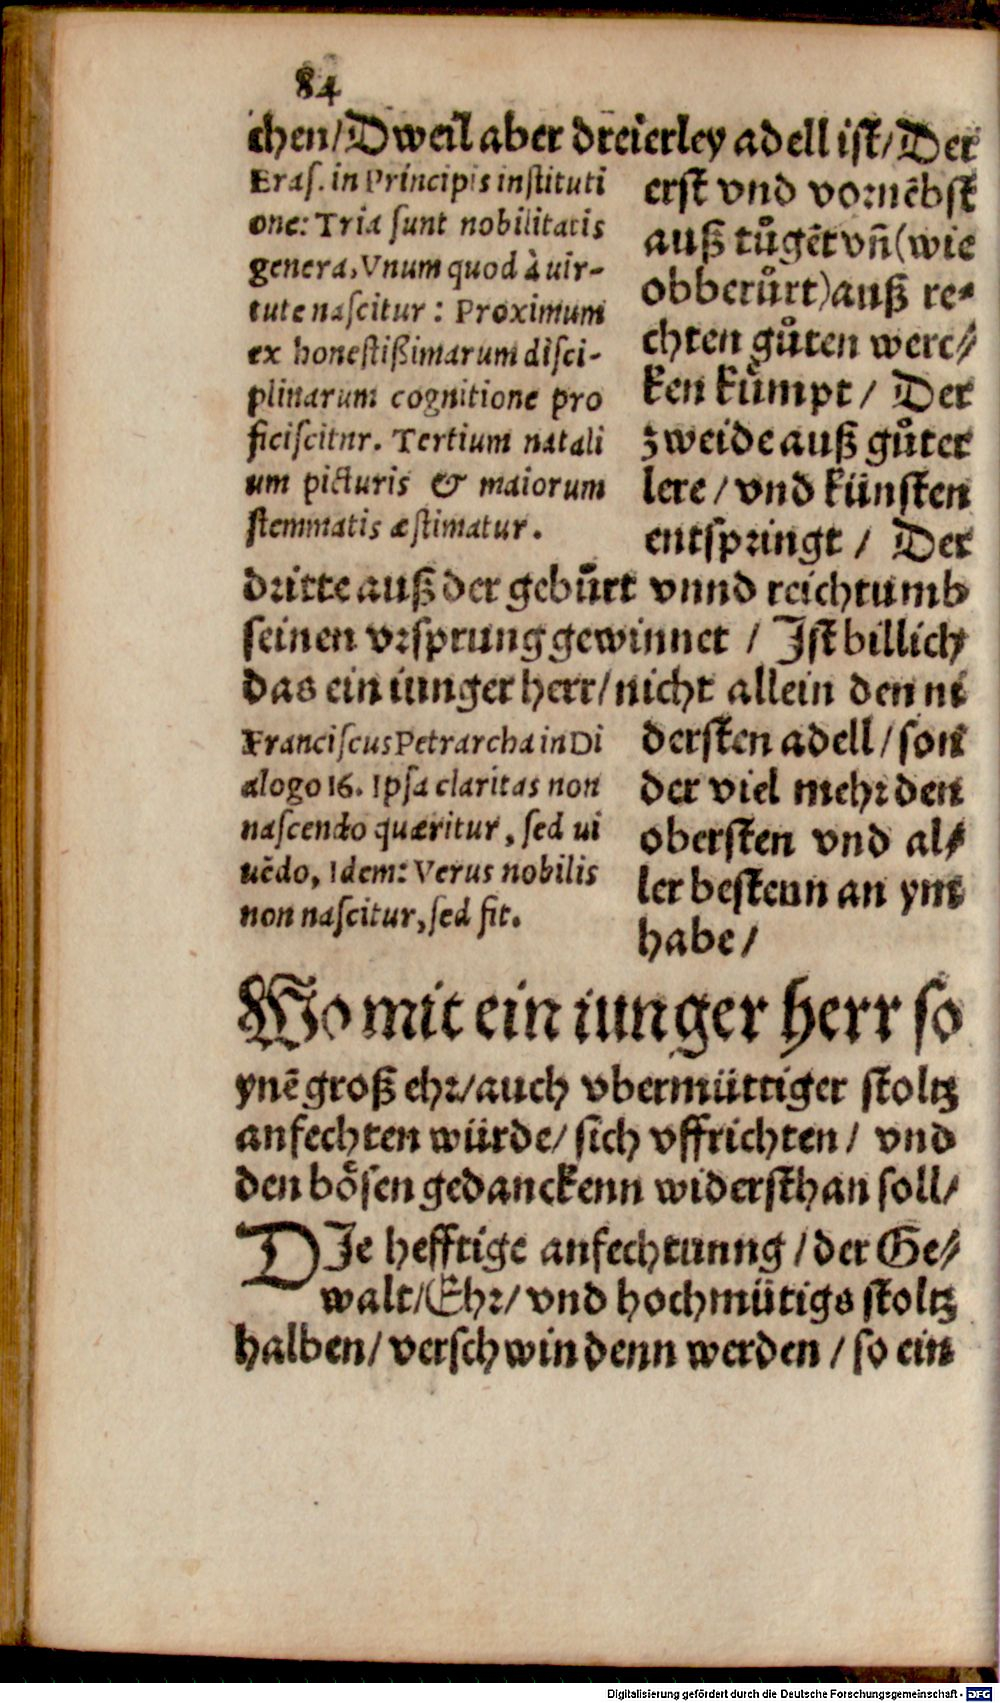 84
chen/Dweil aber dreierley adell ist/Der
Eras. in Principis instituti
one: Tria sunt nobilitatis
genera, Vnum quod à uir-
tute nascitur: Proximum
ex honestißimarum disci-
plinarum cognitione pro
ficiscitnr. Tertium natali
um picturis & maiorum
stemmatis æstimatur.
erst vnd vornẽbst
auß tůgẽt vñ(wie
obberůrt)auß re-
chten gůten werc/
ken kůmpt/ Der
zweide auß gůter
lere/vnd künsten
entspringt/ Der
dritte auß der gebůrt vnnd reichtumb
seinen vrsprung gewinnet / Ist billich
das ein iunger herr/nicht allein den ni
Franciscus Petrarcha in Di
alogo 16. Ipsa claritas non
nascendo quæritur, sed ui
uẽdo, Idem: Verus nobilis
non nascitur, sed fit.
dersten adell/son
der viel mehr den
obersten vnd al/
ler bestenn an ym
habe/
Wo mit ein iunger herr so
ynẽ groß ehr/auch vbermüttiger stoltz
anfechten würde/sich vffrichten/ vnd
den bösen gedanckenn widersthan soll/
DIe hefftige anfechtunng/der Ge/
walt/Ehr/vnd hochmütigs stoltz
halben/verschwindenn werden/so ein
Digitalisierung gefördert durch die Deutsche Forschungsgemeinschaft - DFG